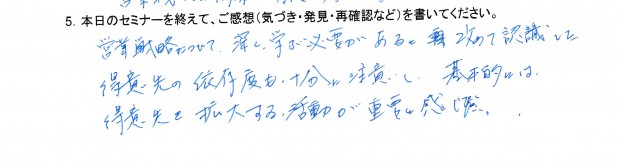 5. 本日のセミナーを終えて、ご感想(気づき・発見・再確認など)を書いてください。
営業戦略について、深く学ぶ必要があると改めて認識した
得意先の依存度も十分に注意し、基本的には、
得意先を拡大する活動が重要と感じた。